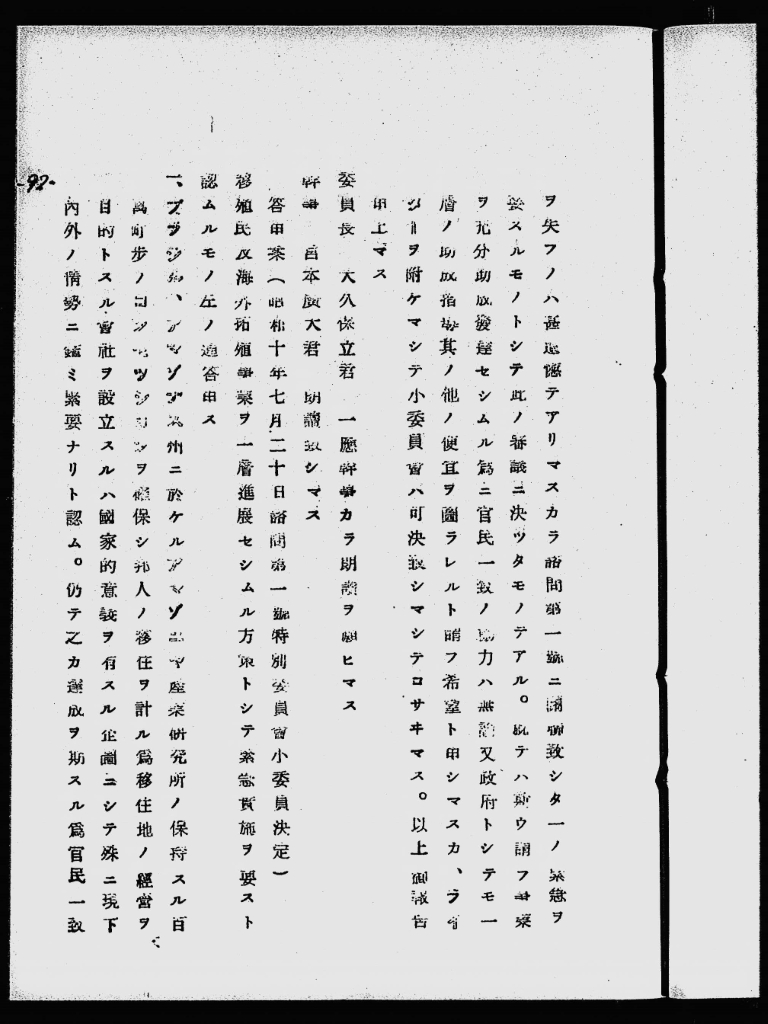 ヲ失フノハ甚遺憾テアリマスカラ諮問第一號ニ關聯致シタ一ノ緊急ヲ
要スルモノトシテ此ノ審議ニ決ツタモノテアル。就テハ斯ウ謂フ事業
ヲ充分助成發達セシムル爲ニ官民一致ノ努力ハ無論又政府トシテモ一
層ノ助成指導其ノ他ノ便宜ヲ圖ラレルト謂フ希望ト申シマスカ、
ヲ附ケマシテ小委員會ハ可決致シマシテコサヰマス。以上御報告
申上マス
委員長 大久保立君 一應幹事カラ朗讀ヲ願ヒマス
幹事 宮本廣大君 朗讀致シマス
答申案(昭和十年七月二十日諮問第一號特別委員會小委員決定)
移殖民及海外拓殖事業ヲ一層進展セシムル方策トシテ緊急實施ヲ要スト
認ムルモノ左ノ通答申ス
一、ブラジル、アマゾナス州ニ於ケルアマゾニヤ産業研究所ノ保持スル百
萬町歩ノコンセツシヨンヲ確保シ邦人ノ移住ヲ計ル爲移住地ノ經營ヲ
目的トスル會社ヲ設立スルハ國家的意義ヲ有スル企圖ニシテ殊ニ現下
內外ノ情勢ニ鑑ミ緊要ナリト認ム。仍テ之カ達成ヲ期スル爲官民一致
-92-